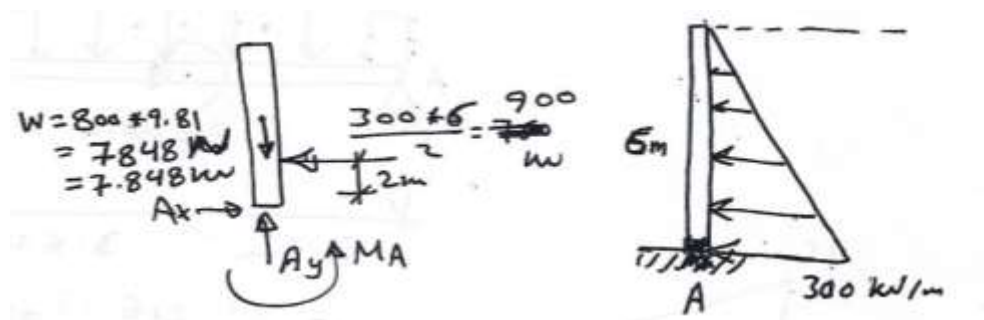 W = 800*9.81
= 7848 N
= 7.848 kN
300*6 / 2 = 900 kN
2m
Ax
Ay
MA
6m
A
300 kN/m